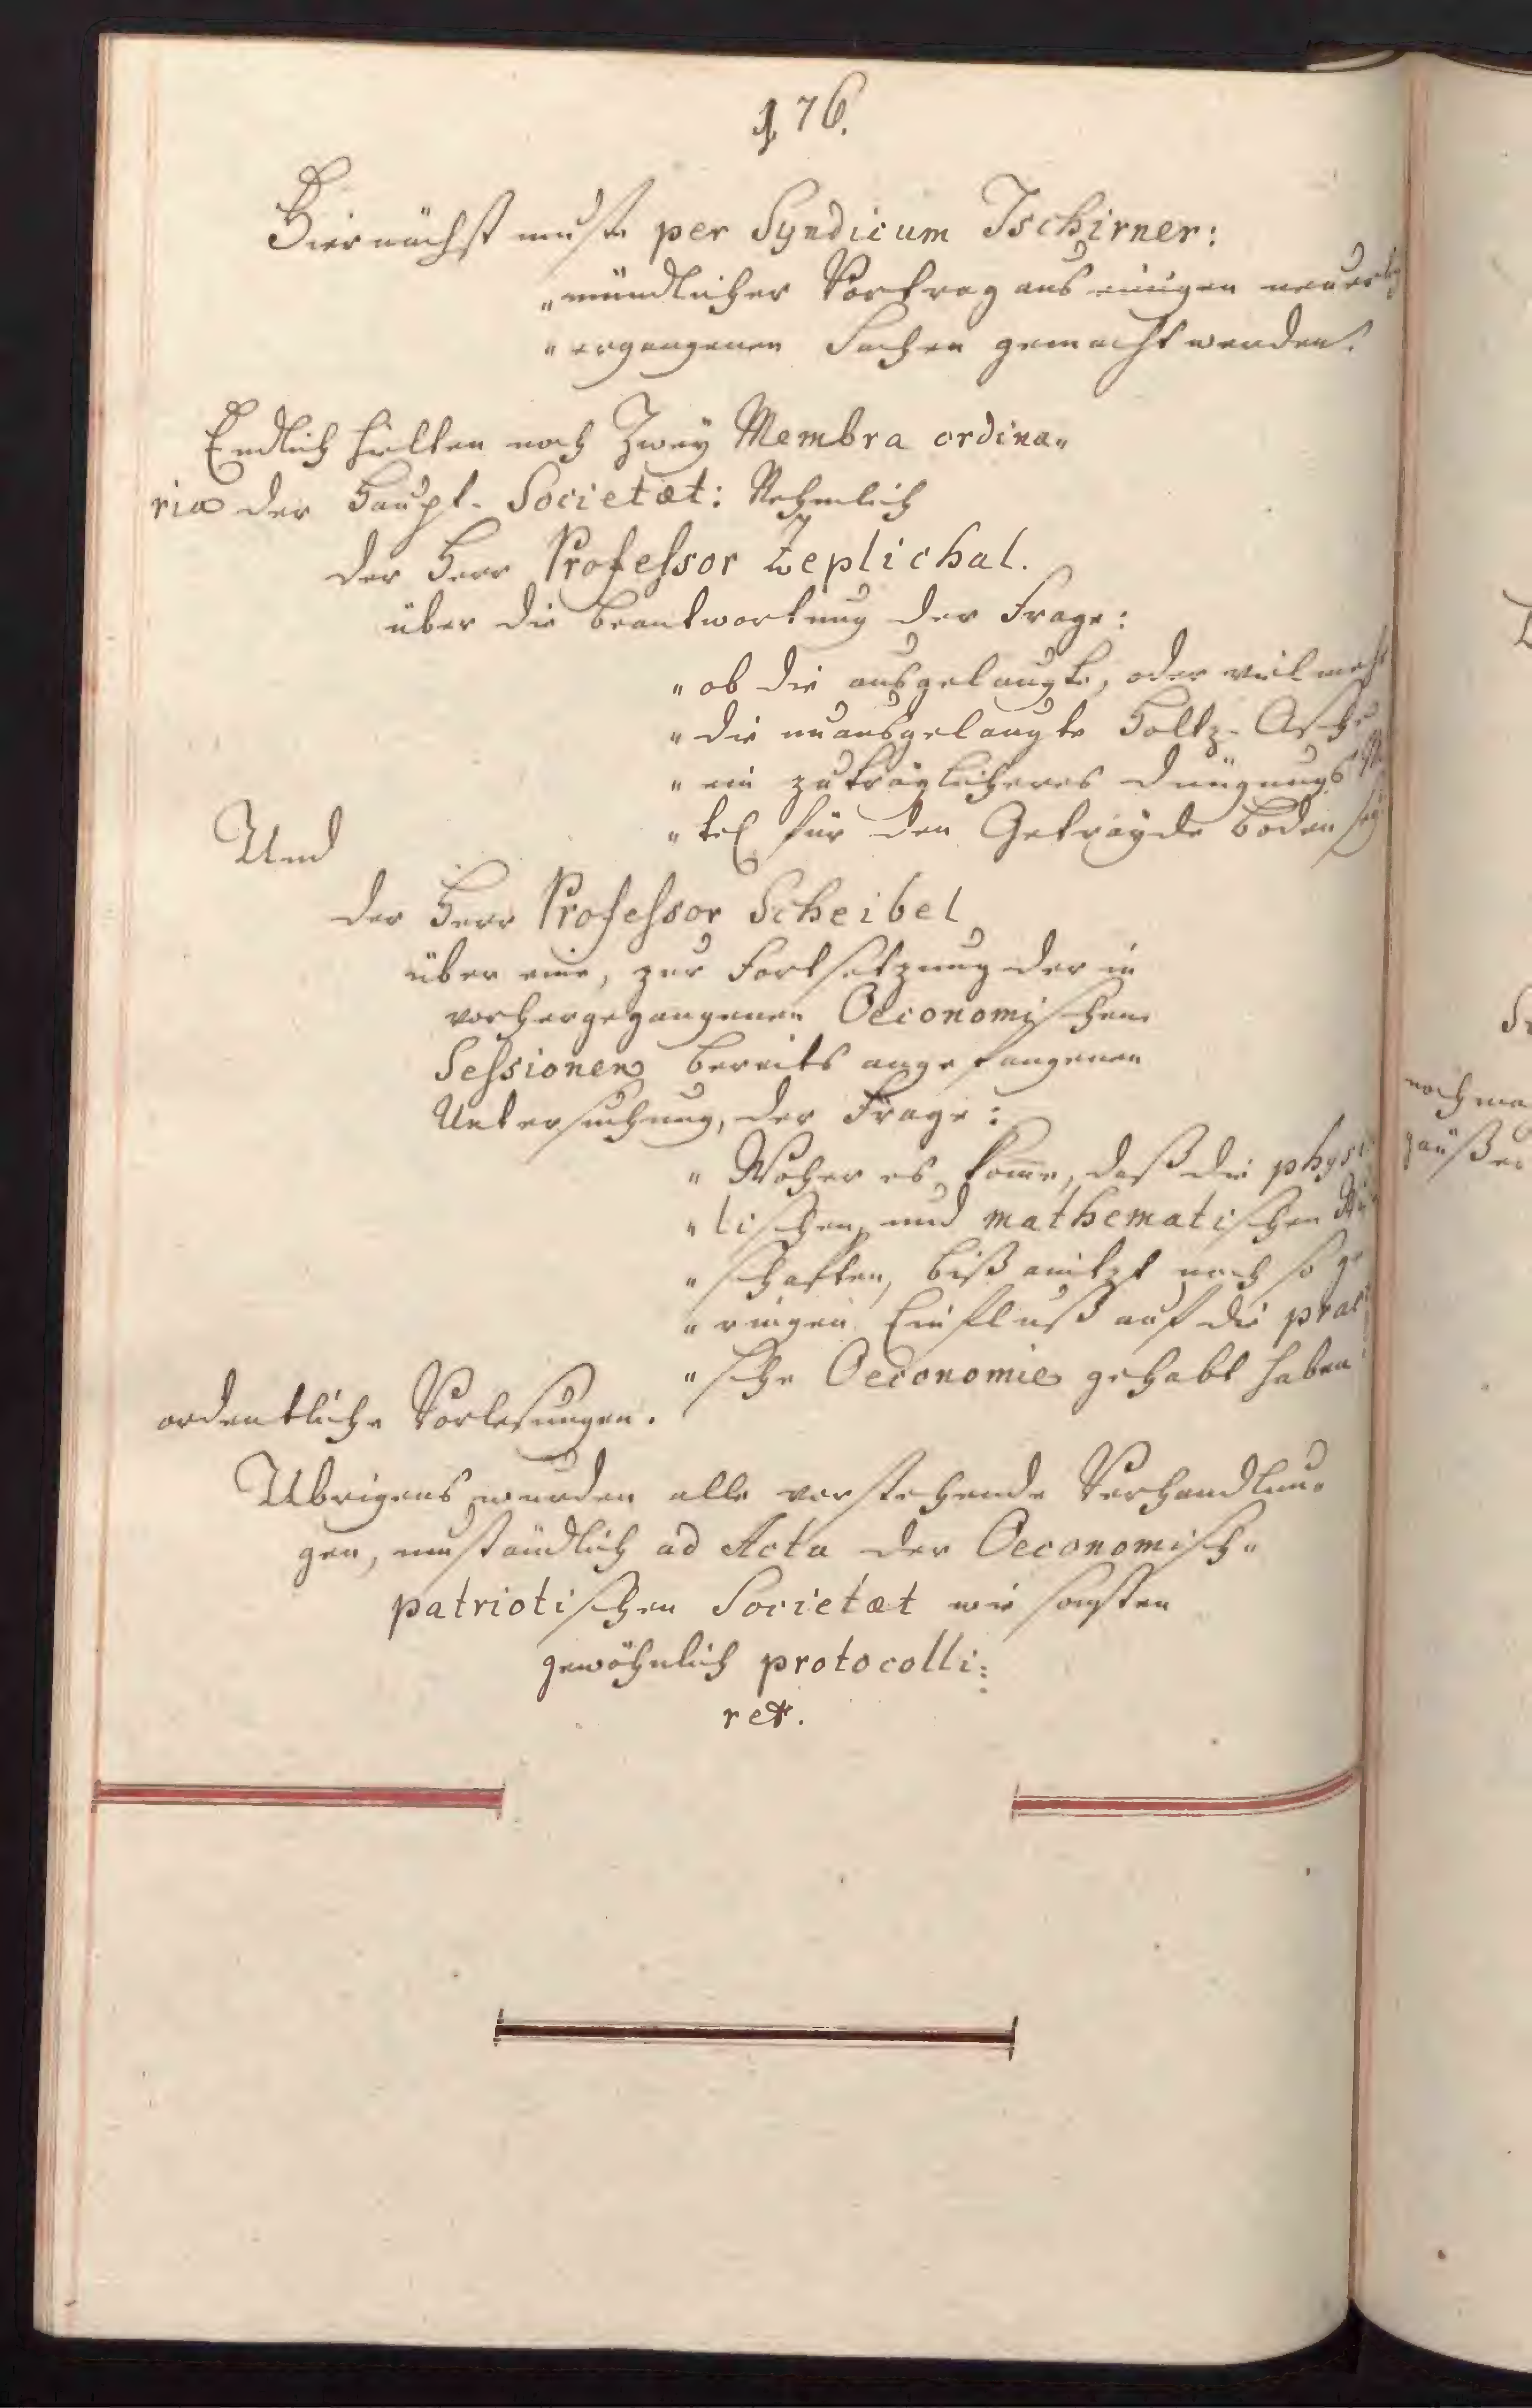 176.
Hiernächst muste per Syndicum Tschirner:
„mündlicher Vortrag aus einigen neuer
„ergangenen Sachen gemacht werden.
Endlich hielten noch Zwey Membra ordina„
ria der Haupt-Societæt: Nehmlich
der Herr Professor Zeplichal.
über die Beantwortung der Frage:
„ob die ausgelaugte, oder vielmehr
„die unausgelaugte Holtz-Asche
„ein zuträglicheres Düngungs Mi
„tel für den Getrayde Boden sey
Und
der Herr Professor Scheibel
über eine, zur Fortsetzung der in
vorhergegangenen Oeconomischen
Sessionen bereits angefangenen
Untersuchung, der Frage:
„Woher es komme, daß die physi
„lischen, und mathematischen
„schaften, biß anitzt noch so ge
„ringen Einfluß auf die prac
„sche Oeconomie gehabt haben
ordentliche Vorlesungen.
Ubrigens wurden alle vorstehende Verhandlun„
gen, umständlich ad Acta der Oeconomisch„
patriotischen Societæt wie sonsten
gewöhnlich protocolli:
ret.
noch